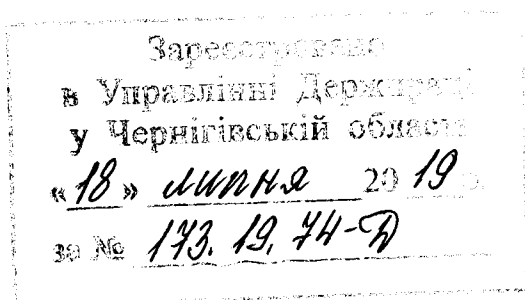 Зареєстровано
в Управлінні Держпраці
у Чернігівській області
«18» липня 2019 р.
за № 173.19.74-Д